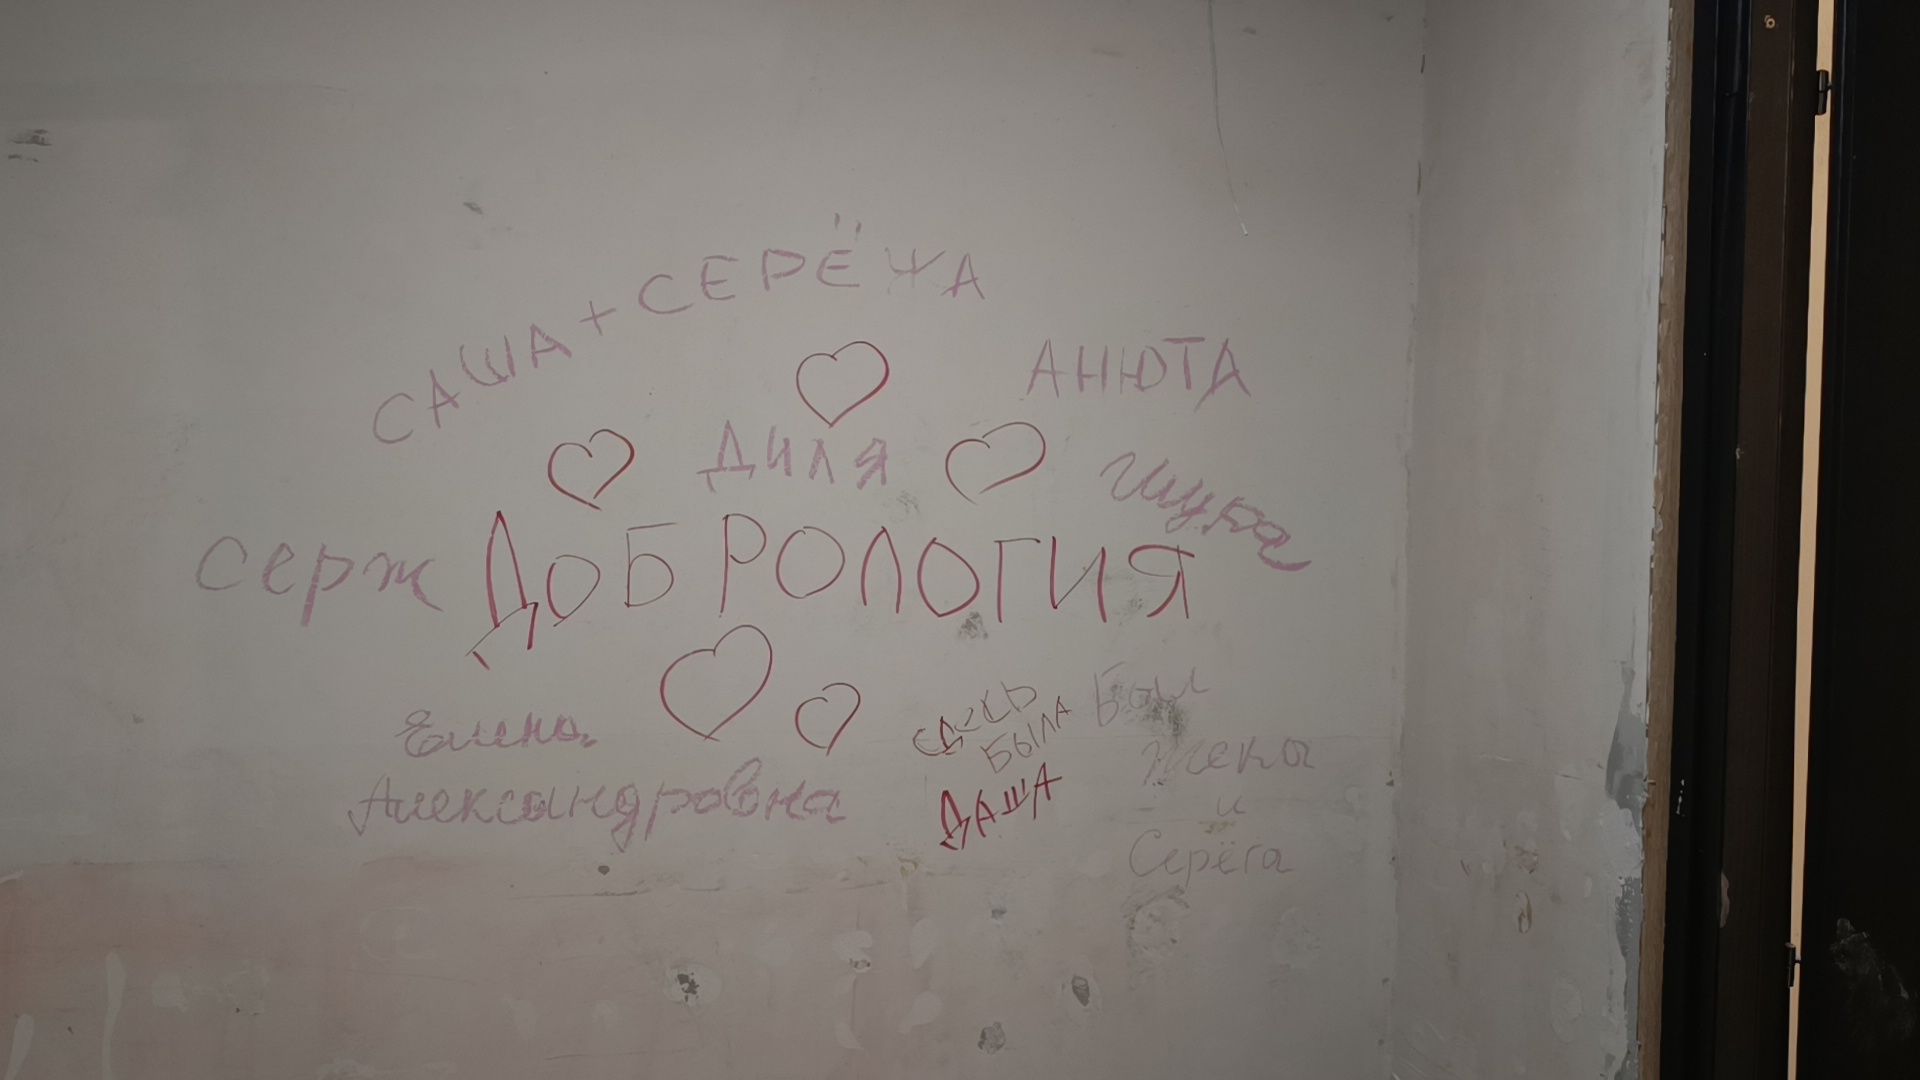 САША + СЕРЁЖА
АНЮТА
ДИЛЯ
серж
ДОБРОЛОГИЯ
Елена
Александровна
СДЕСЬ
БЫЛА
ДАША
Был
Жека
и
Серёга